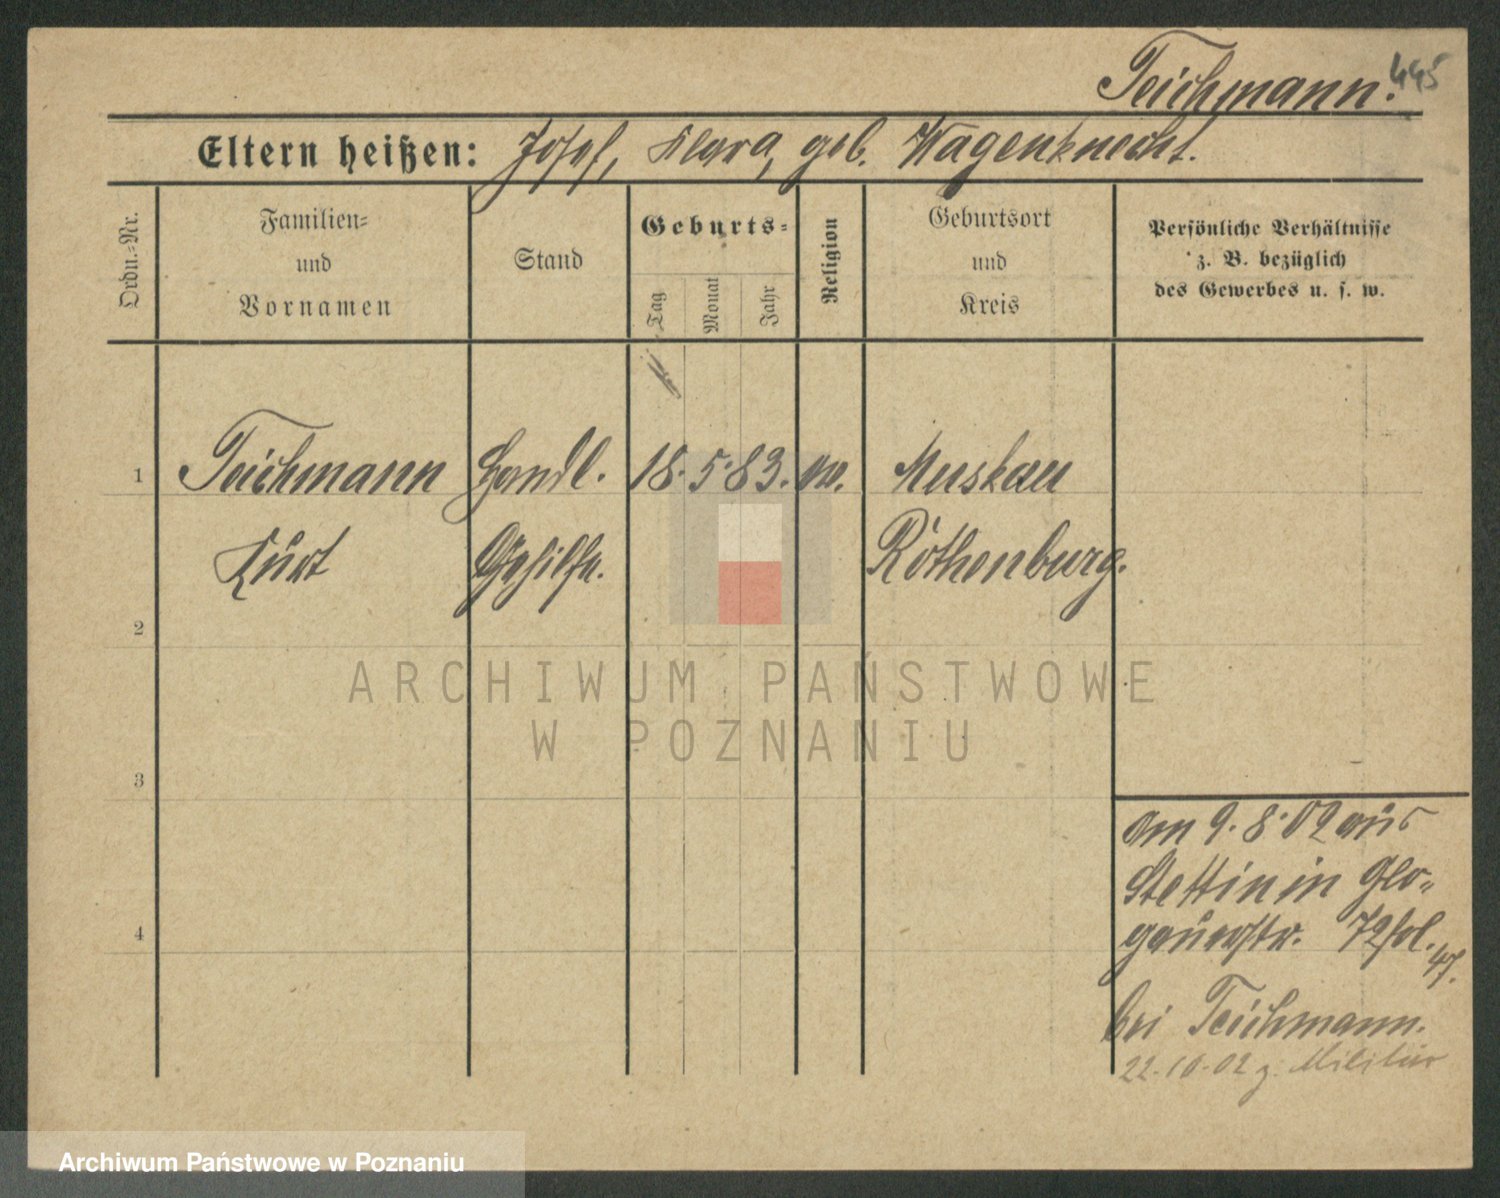 Teichmann. 445
Eltern heißen: Josef, Klara, geb. Wagenknecht.
Ordn.-Nr.
Familien-
und
Vornamen
Stand
Geburts-
Tag
Monat
Jahr
Religion
Geburtsort
und
Kreis
Persönliche Verhältnisse
z. B. bezüglich
des Gewerbes u. s. w.
1 Teichmann Handl. 18. 5. 83. ev. Muskau
Kurt Gehilfe. Rothenburg.
2
3
4
am 9. 8. 02 aus
Stettin in Glo-
gauerstr. 72 fol. 47.
bei Teichmann.
22.10.02 z. Militär
ARCHIWUM PAŃSTWOWE
W POZNANIU
Archiwum Państwowe w Poznaniu